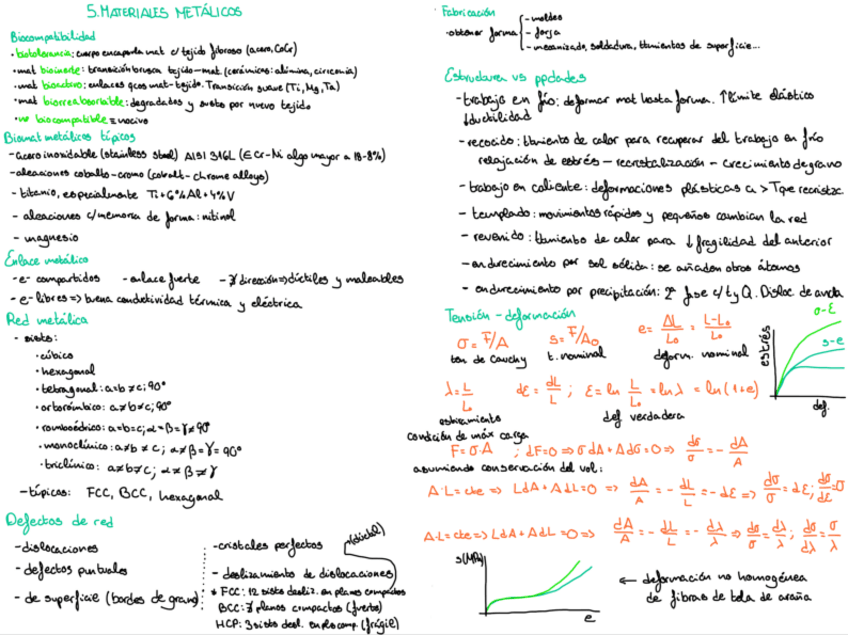 5.MATERIALES METÁLICOS
Biocompatibilidad
· biotolerancia: cuerpo encapsula mat c/ tejido fibroso (acero, CoCr)
· mat bioinerte: transición brusca tejido-mat (cerámicas: alúmina, circonia)
· mat bioactivo: enlaces qcos mat-tejido. Transición suave (Ti, Mg, Ta)
· mat biorreabsorbible: degradados y sust o por nuevo tejido
· no biocompatible ≡ nocivo
Biomat metálicos típicos
- acero inoxidable (stainless steel) AISI 316L (∈ Cr-Ni algo mayor a 18-8%)
- aleaciones cobalto-cromo (cobalt-chrome alloys)
- titanio, especialmente Ti+6%Al+4%V
- aleaciones c/memoria de forma: nitinol
- magnesio
Enlace metálico
- e- compartidos - enlace fuerte - ∄ dirección ⇒ dúctiles y maleables
- e- libres => buena conductividad térmica y eléctrica
Red metálica
- sists:
· cúbico
· hexagonal
· tetragonal: a=b≠c; 90°
· ortorómbico: a≠b≠c; 90°
· romboédrico: a=b=c; α=β=γ≠90°
· monoclínico: a≠b≠c; α≠β=γ=90°
· triclínico: a≠b≠c; α≠β≠γ
- típicas: FCC, BCC, hexagonal
Defectos de red
- dislocaciones
- defectos puntuales
- de superficie (bordes de grano)
- cristales perfectos (dúctil)
- deslizamiento de dislocaciones
* FCC: 12 sists desliz. en planos compactos
BCC: ∄ planos compactos (fuerte)
HCP: 3 sists desl. en plo comp. (frágil)
· Fabricación
· obtener forma
- moldeo
- forja
- mecanizado, soldadura, ttmientos de superficie...
Estructura vs ppdades
- trabajo en frío: deformar mat hasta forma. ↑límite elástico
↓ductilidad
- recocido: ttmiento de calor para recuperar del trabajo en frío
relajación de estrés - recristalización - crecimiento de grano
- trabajo en caliente: deformaciones plásticas a > T que recristaz.
- templado: movimientos rápidos y pequeños cambian la red
- revenido: ttmiento de calor para ↓ fragilidad del anterior
- endurecimiento por sol sólida: se añaden otros átomos
- endurecimiento por precipitación: 2ª fase c/ t y Q. Disloc. de ancla
Tensión - deformación
σ = F/A s = F/A₀ e = ΔL/L₀ = L-L₀/L₀
ten de Cauchy t. nominal deform. nominal
λ = L/L₀ dε = dL/L ; ε = ln L/L₀ = ln λ = ln(1+e)
estiramiento def verdadera
estrés
σ-ε
s-e
def.
condición de máx carga
F = σ·A ; dF=0 ⇒ σdA + Adσ = 0 ⇒ dσ/σ = - dA/A
asumiendo conservación del vol:
A·L = cte => LdA + AdL = 0 => dA/A = - dL/L = - dε ⇒ dσ/σ = dε; dσ/dε = σ
A·L = cte => LdA + AdL = 0 => dA/A = - dL/L = - dλ/λ ⇒ dσ/σ = dλ/λ; dσ/dλ = σ/λ
s(MPa)
e
← deformación no homogénea
de fibras de tela de araña